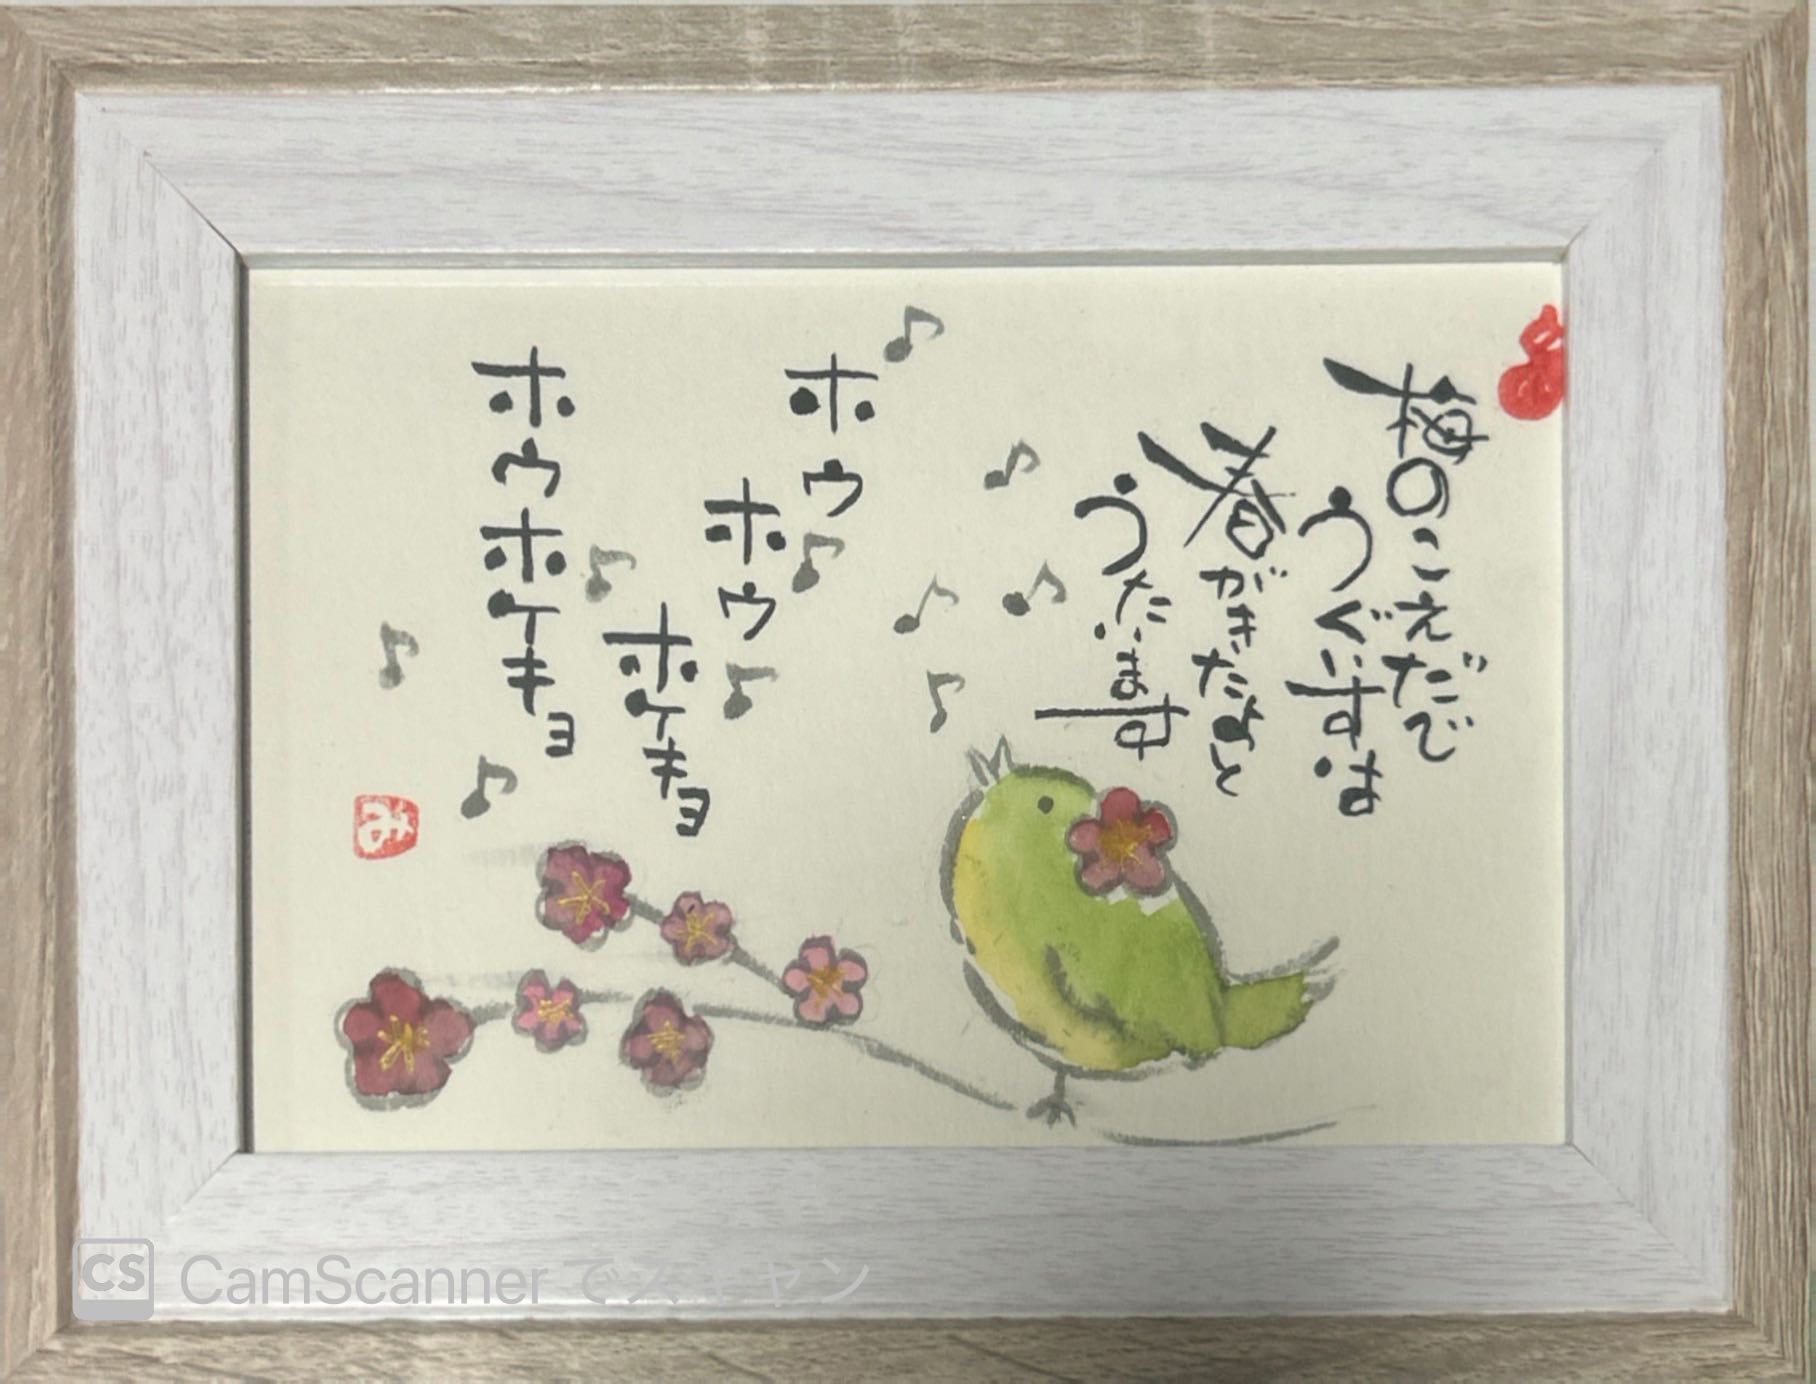 梅のこえだで
うぐいすは
春がきたよと
うたいます
ホウ
ホウ
ホケキョ
ホウホケキョ
CS CamScanner でスキャン